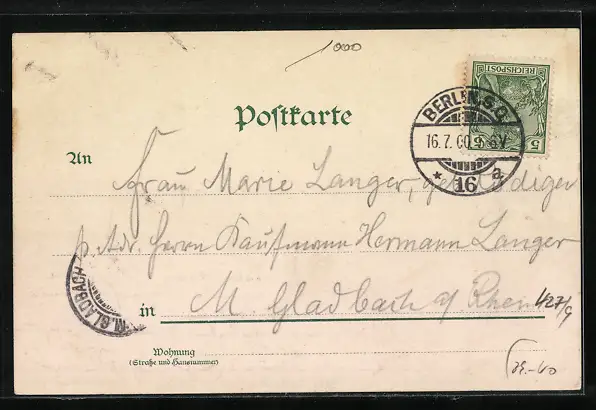 1000
5
REICHSPOST
Postkarte
BERLIN S.O.
16.7.00
* 16 a
An Frau Marie Langer,
p. Adr. Herrn Kaufmann Hermann Langer
M. GLADBACH
in M. Gladbach a/ Rhein
427/9
Wohnung
(Straße und Hausnummer)